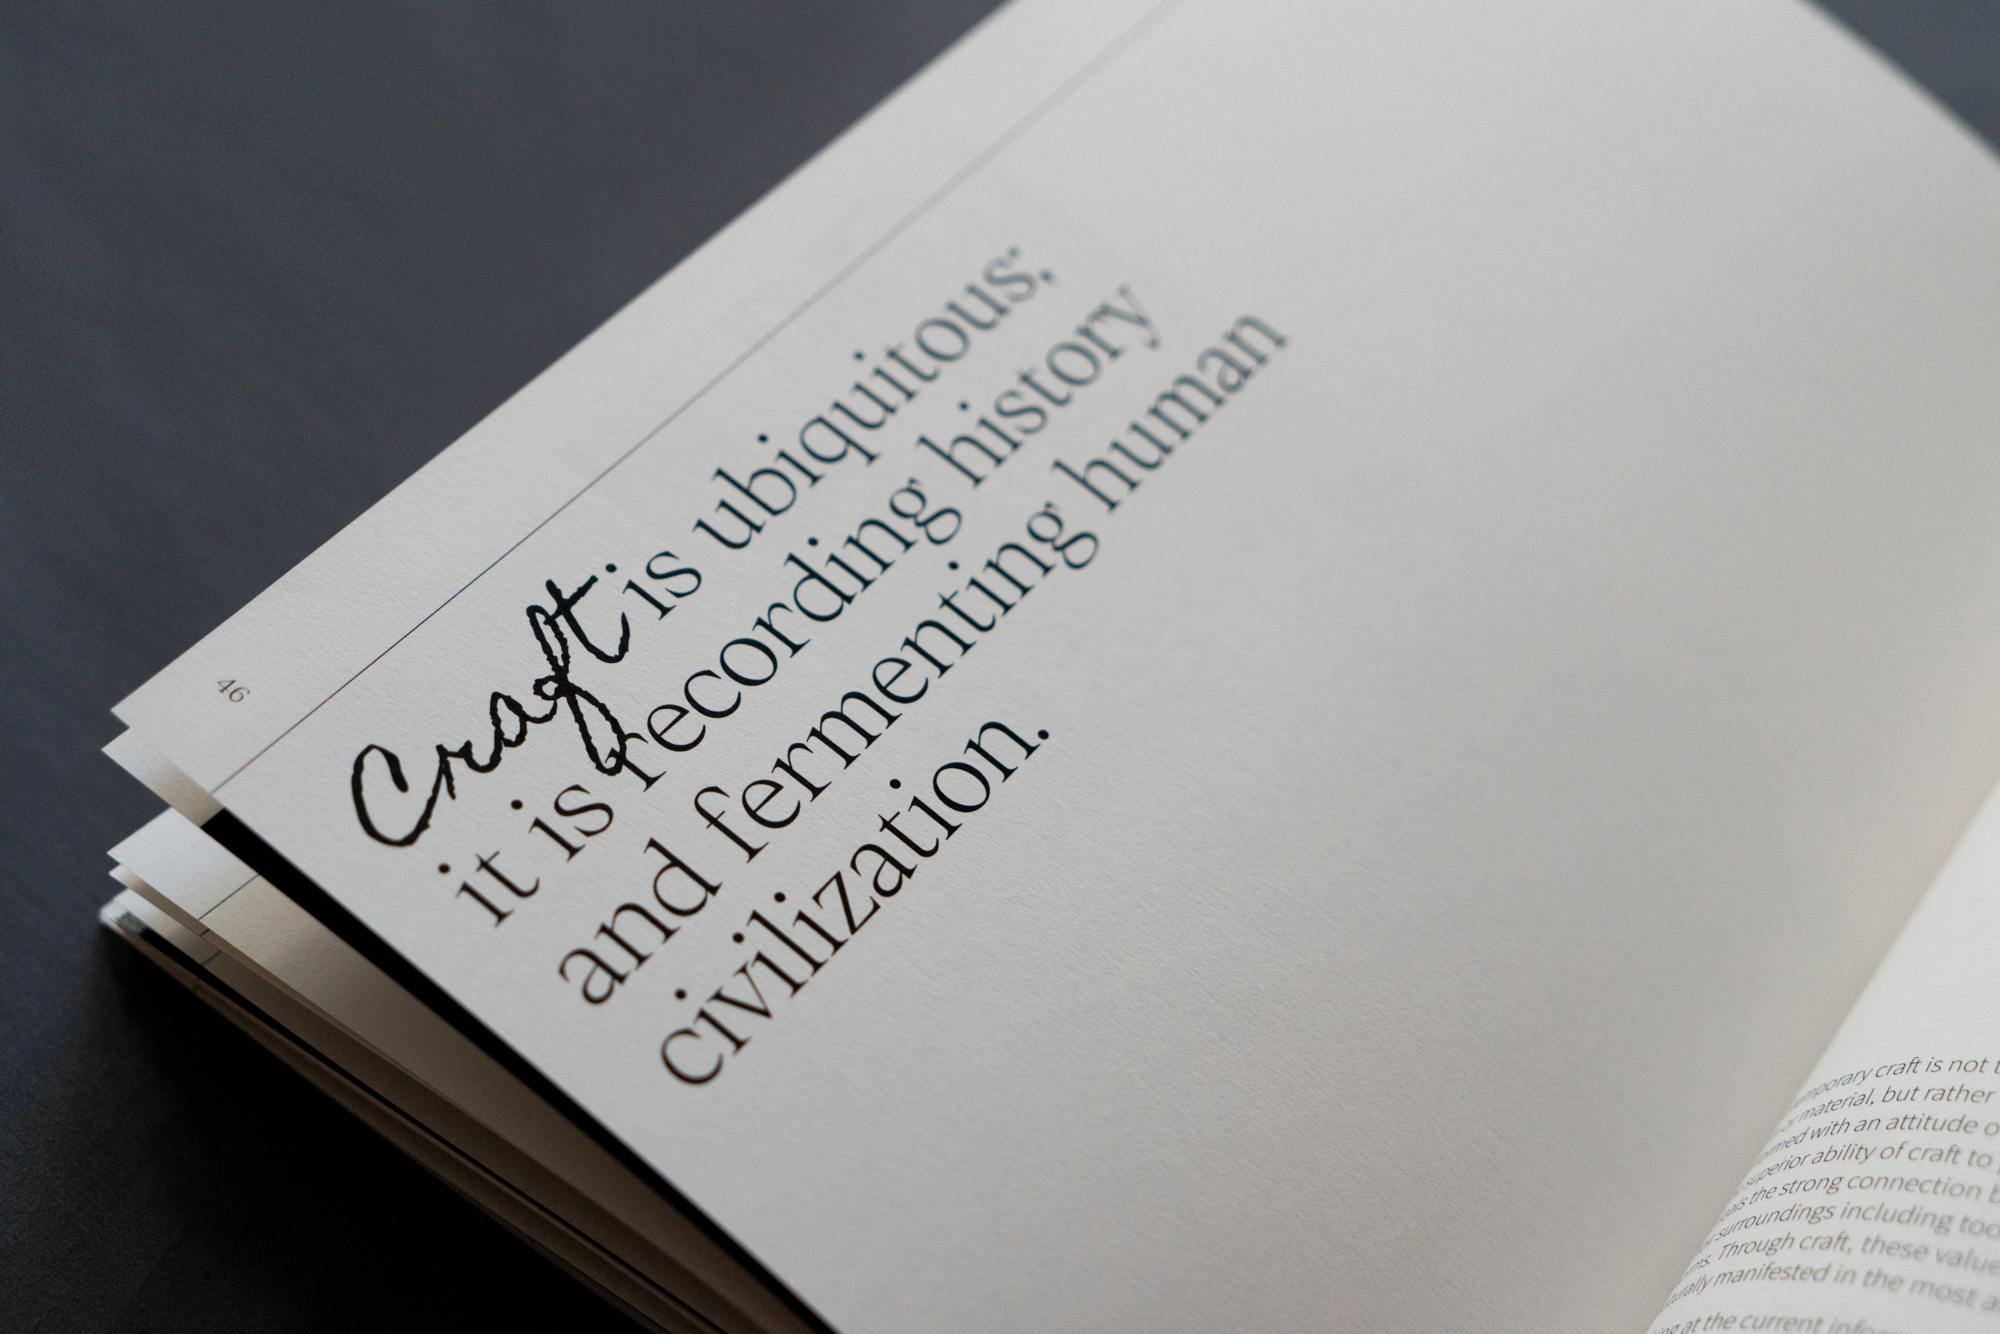 46
Craft is ubiquitous;
it is recording history
and fermenting human
civilization.
craft is not
material, but rather
with an attitude
superior ability of craft to
the strong connection
surroundings including
Through craft, these
manifested in the most
at the current